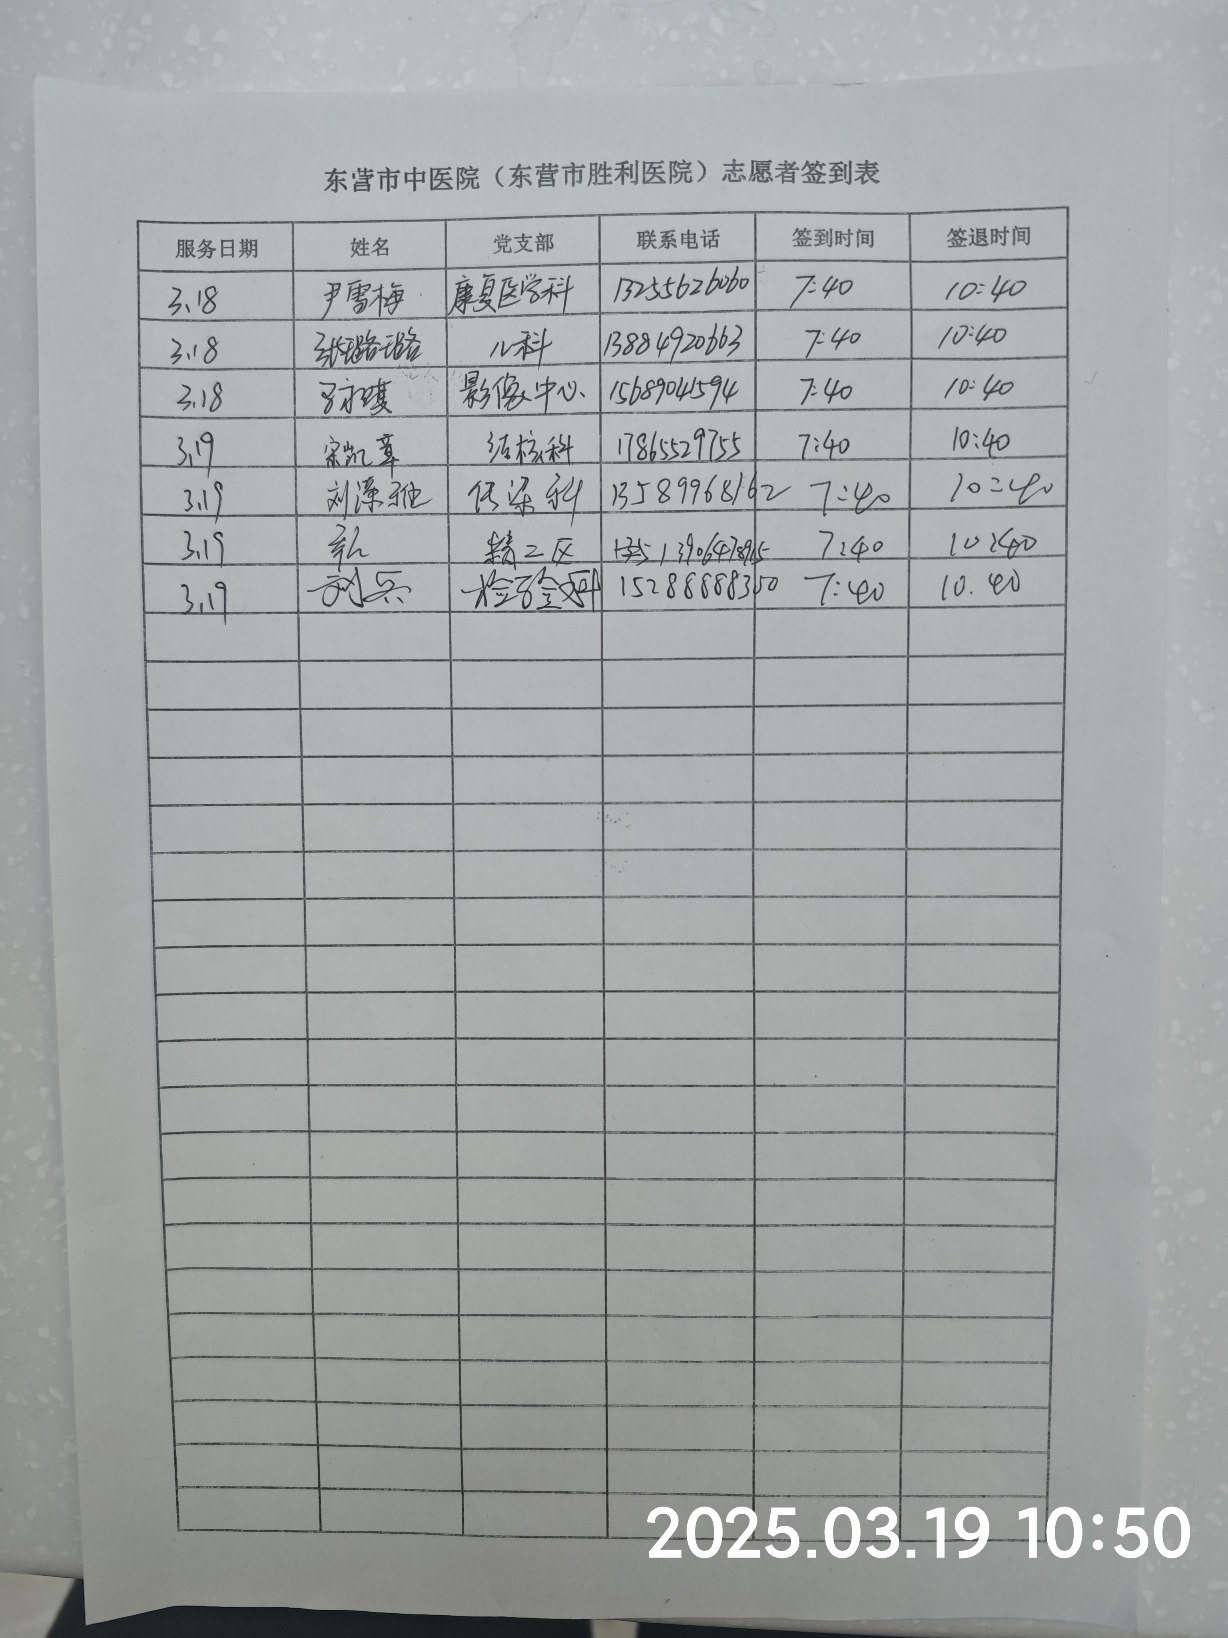 东营市中医院（东营市胜利医院）志愿者签到表
服务日期 姓名 党支部 联系电话 签到时间 签退时间
3.18 尹雪梅 康复医学科 13255626060 7:40 10:40
3.18 张璐璐 儿科 13884920663 7:40 10:40
3.18 影像中心 15689041594 7:40 10:40
3.19 宋凯章 结核科 17865529755 7:40 10:40
3.19 刘深 传染科 13589968162 7:40 10:40
3.19 精二区 7:40 10:40
3.19 刘兵 检验科 15288888350 7:40 10.40
2025.03.19 10:50